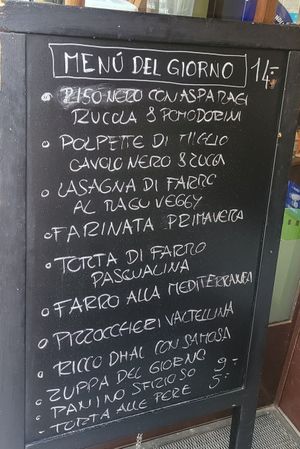 MENÚ DEL GIORNO 14.-
• RISO NERO CON ASPARAGI
RUCOLA & POMODORINI
• POLPETTE DI MIGLIO
CAVOLO NERO & ZUCCA
• LASAGNA DI FARRO
AL RAGU VEGGY
• FARINATA PRIMAVERA
• TORTA DI FARRO
PASQUALINA
• FARRO ALLA MEDITERRANEA
• PIZZOCCHERI VALTELLINA
• RICCO DHAL CON SAMOSA
• ZUPPA DEL GIORNO 9.-
• PANINO SFIZIOSO 5.-
• TORTA ALLE PERE